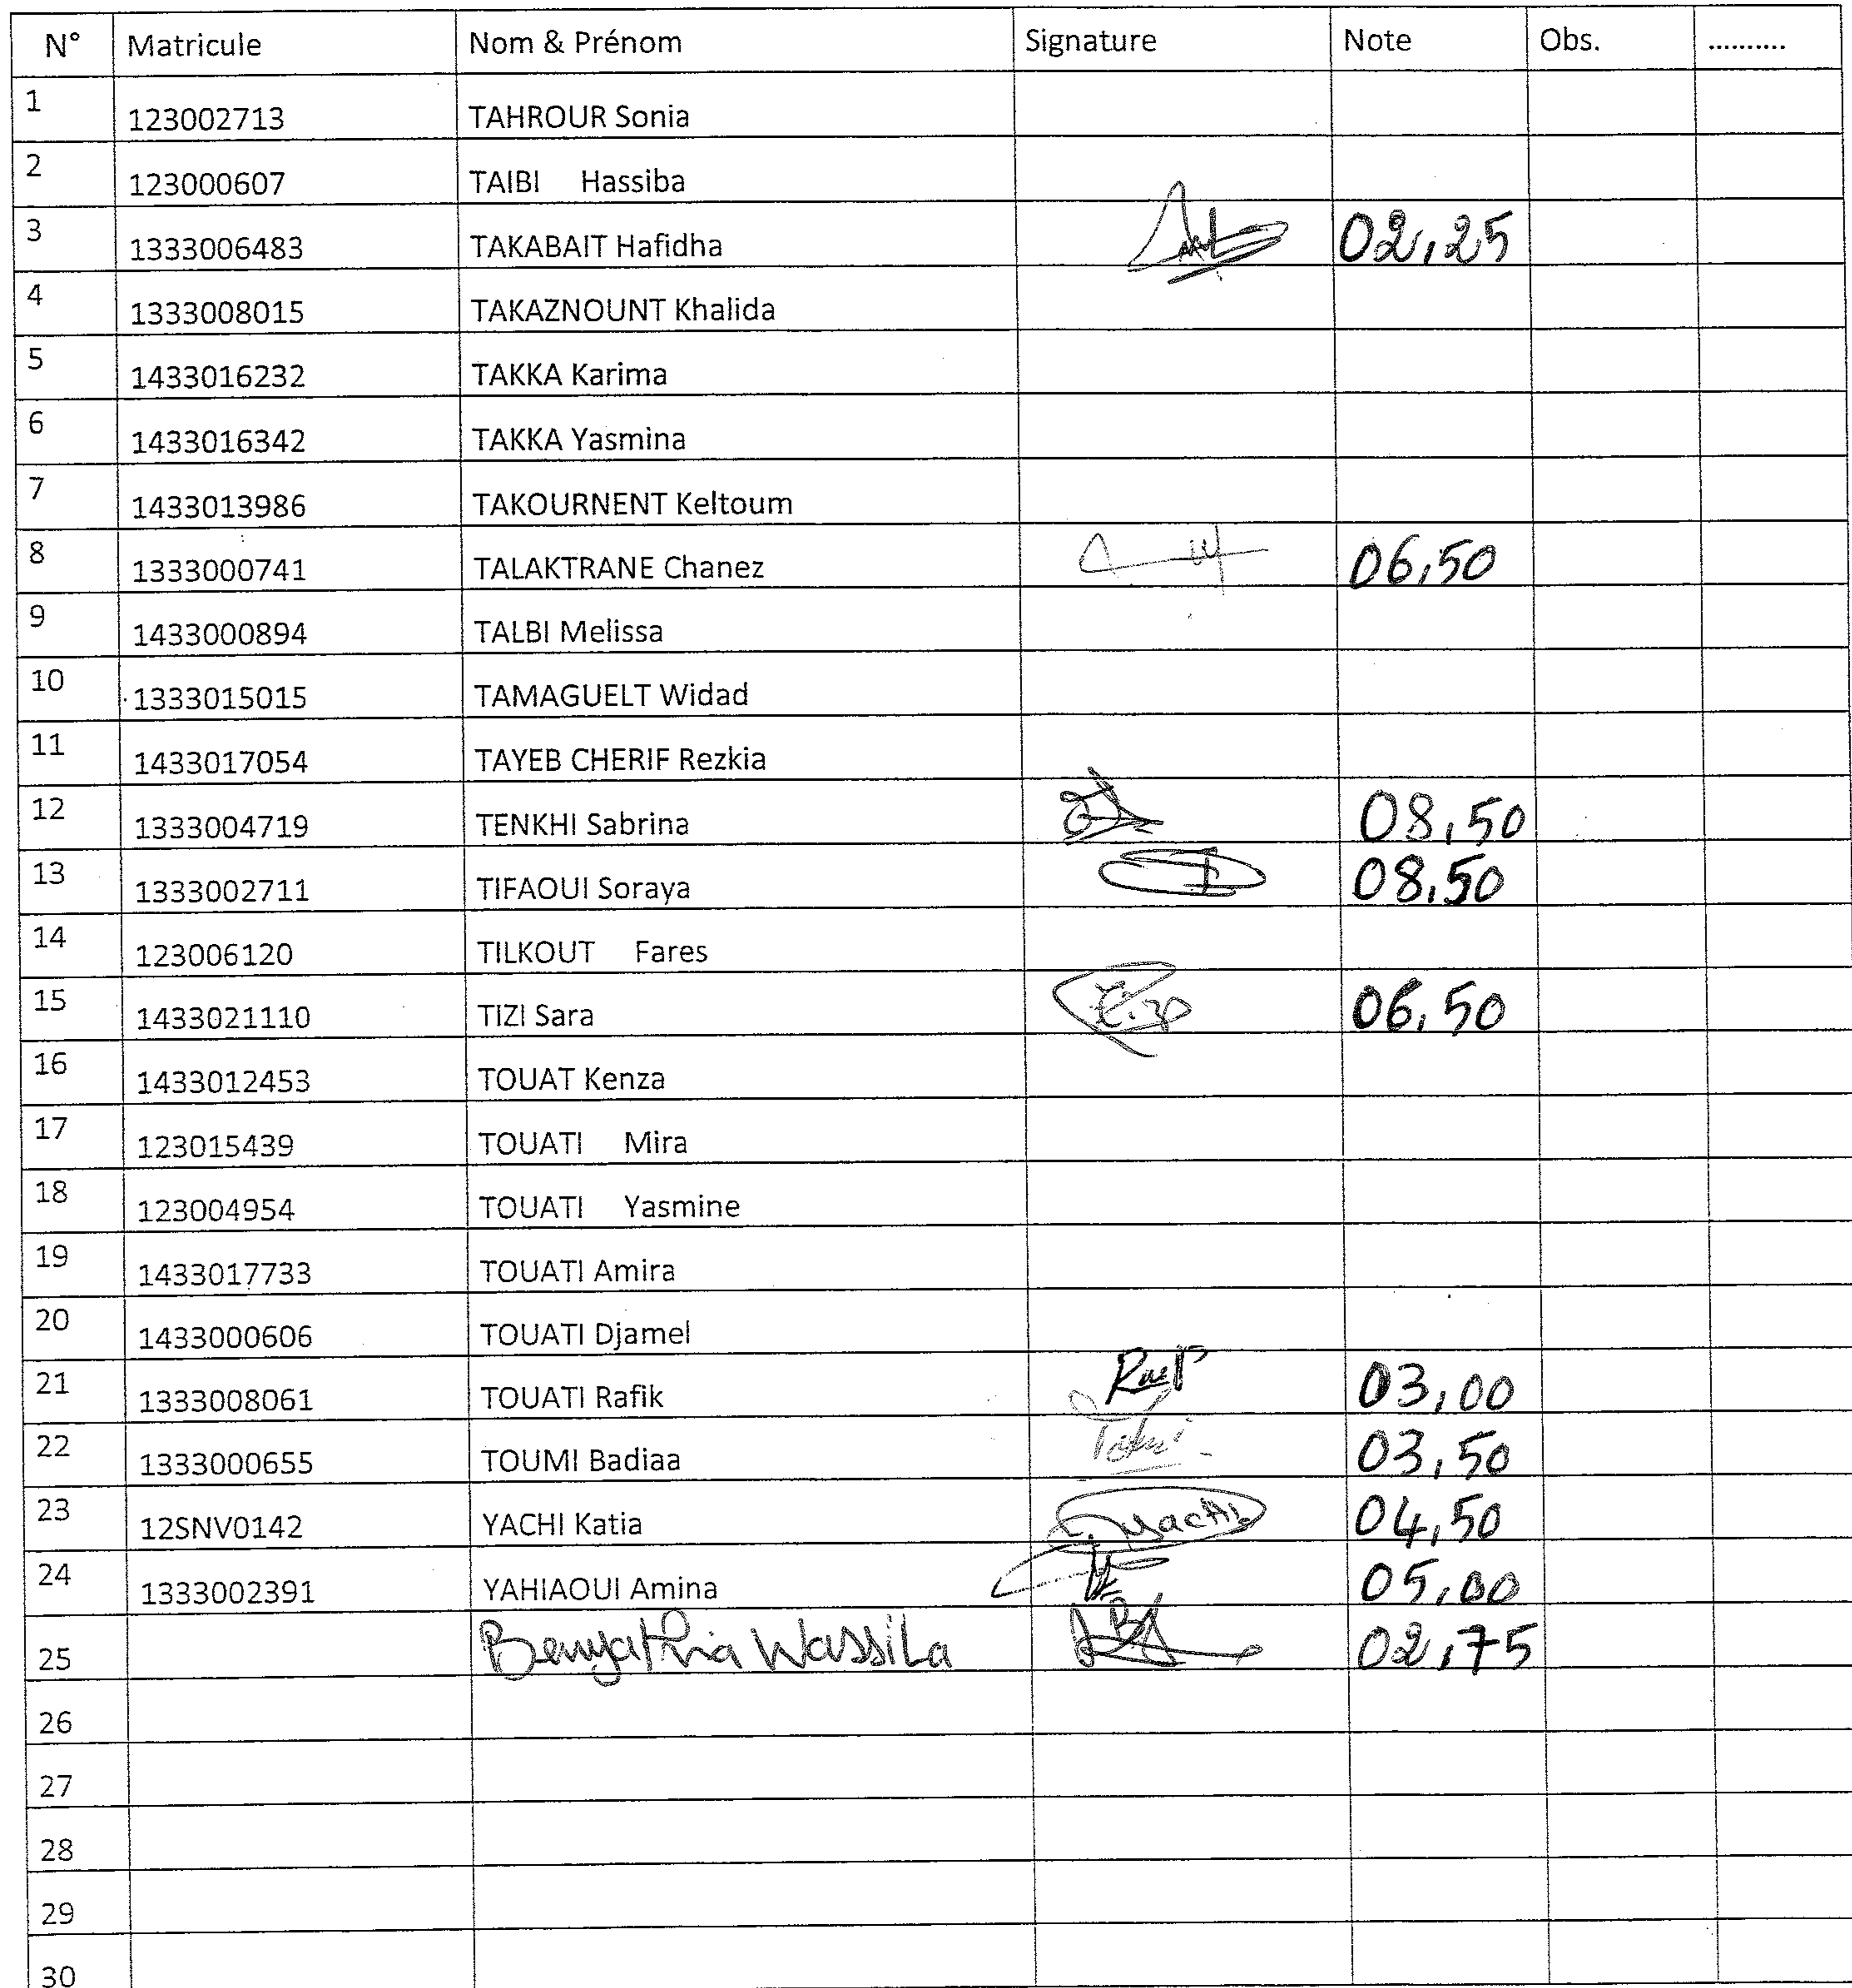 N° Matricule Nom & Prénom Signature Note Obs. ..........
1 123002713 TAHROUR Sonia
2 123000607 TAIBI Hassiba
3 1333006483 TAKABAIT Hafidha 02,25
4 1333008015 TAKAZNOUNT Khalida
5 1433016232 TAKKA Karima
6 1433016342 TAKKA Yasmina
7 1433013986 TAKOURNENT Keltoum
8 1333000741 TALAKTRANE Chanez 06,50
9 1433000894 TALBI Melissa
10 1333015015 TAMAGUELT Widad
11 1433017054 TAYEB CHERIF Rezkia
12 1333004719 TENKHI Sabrina 08,50
13 1333002711 TIFAOUI Soraya 08,50
14 123006120 TILKOUT Fares
15 1433021110 TIZI Sara 06,50
16 1433012453 TOUAT Kenza
17 123015439 TOUATI Mira
18 123004954 TOUATI Yasmine
19 1433017733 TOUATI Amira
20 1433000606 TOUATI Djamel
21 1333008061 TOUATI Rafik 03,00
22 1333000655 TOUMI Badiaa 03,50
23 12SNV0142 YACHI Katia yachi 04,50
24 1333002391 YAHIAOUI Amina 05,00
25 Benyahia Wassila 02,75
26
27
28
29
30